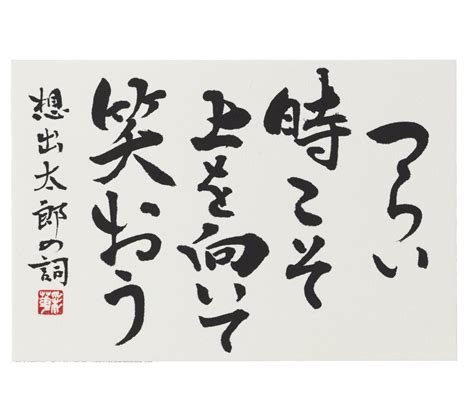 つらい
時こそ
上を向いて
笑おう
想出太郎の詞